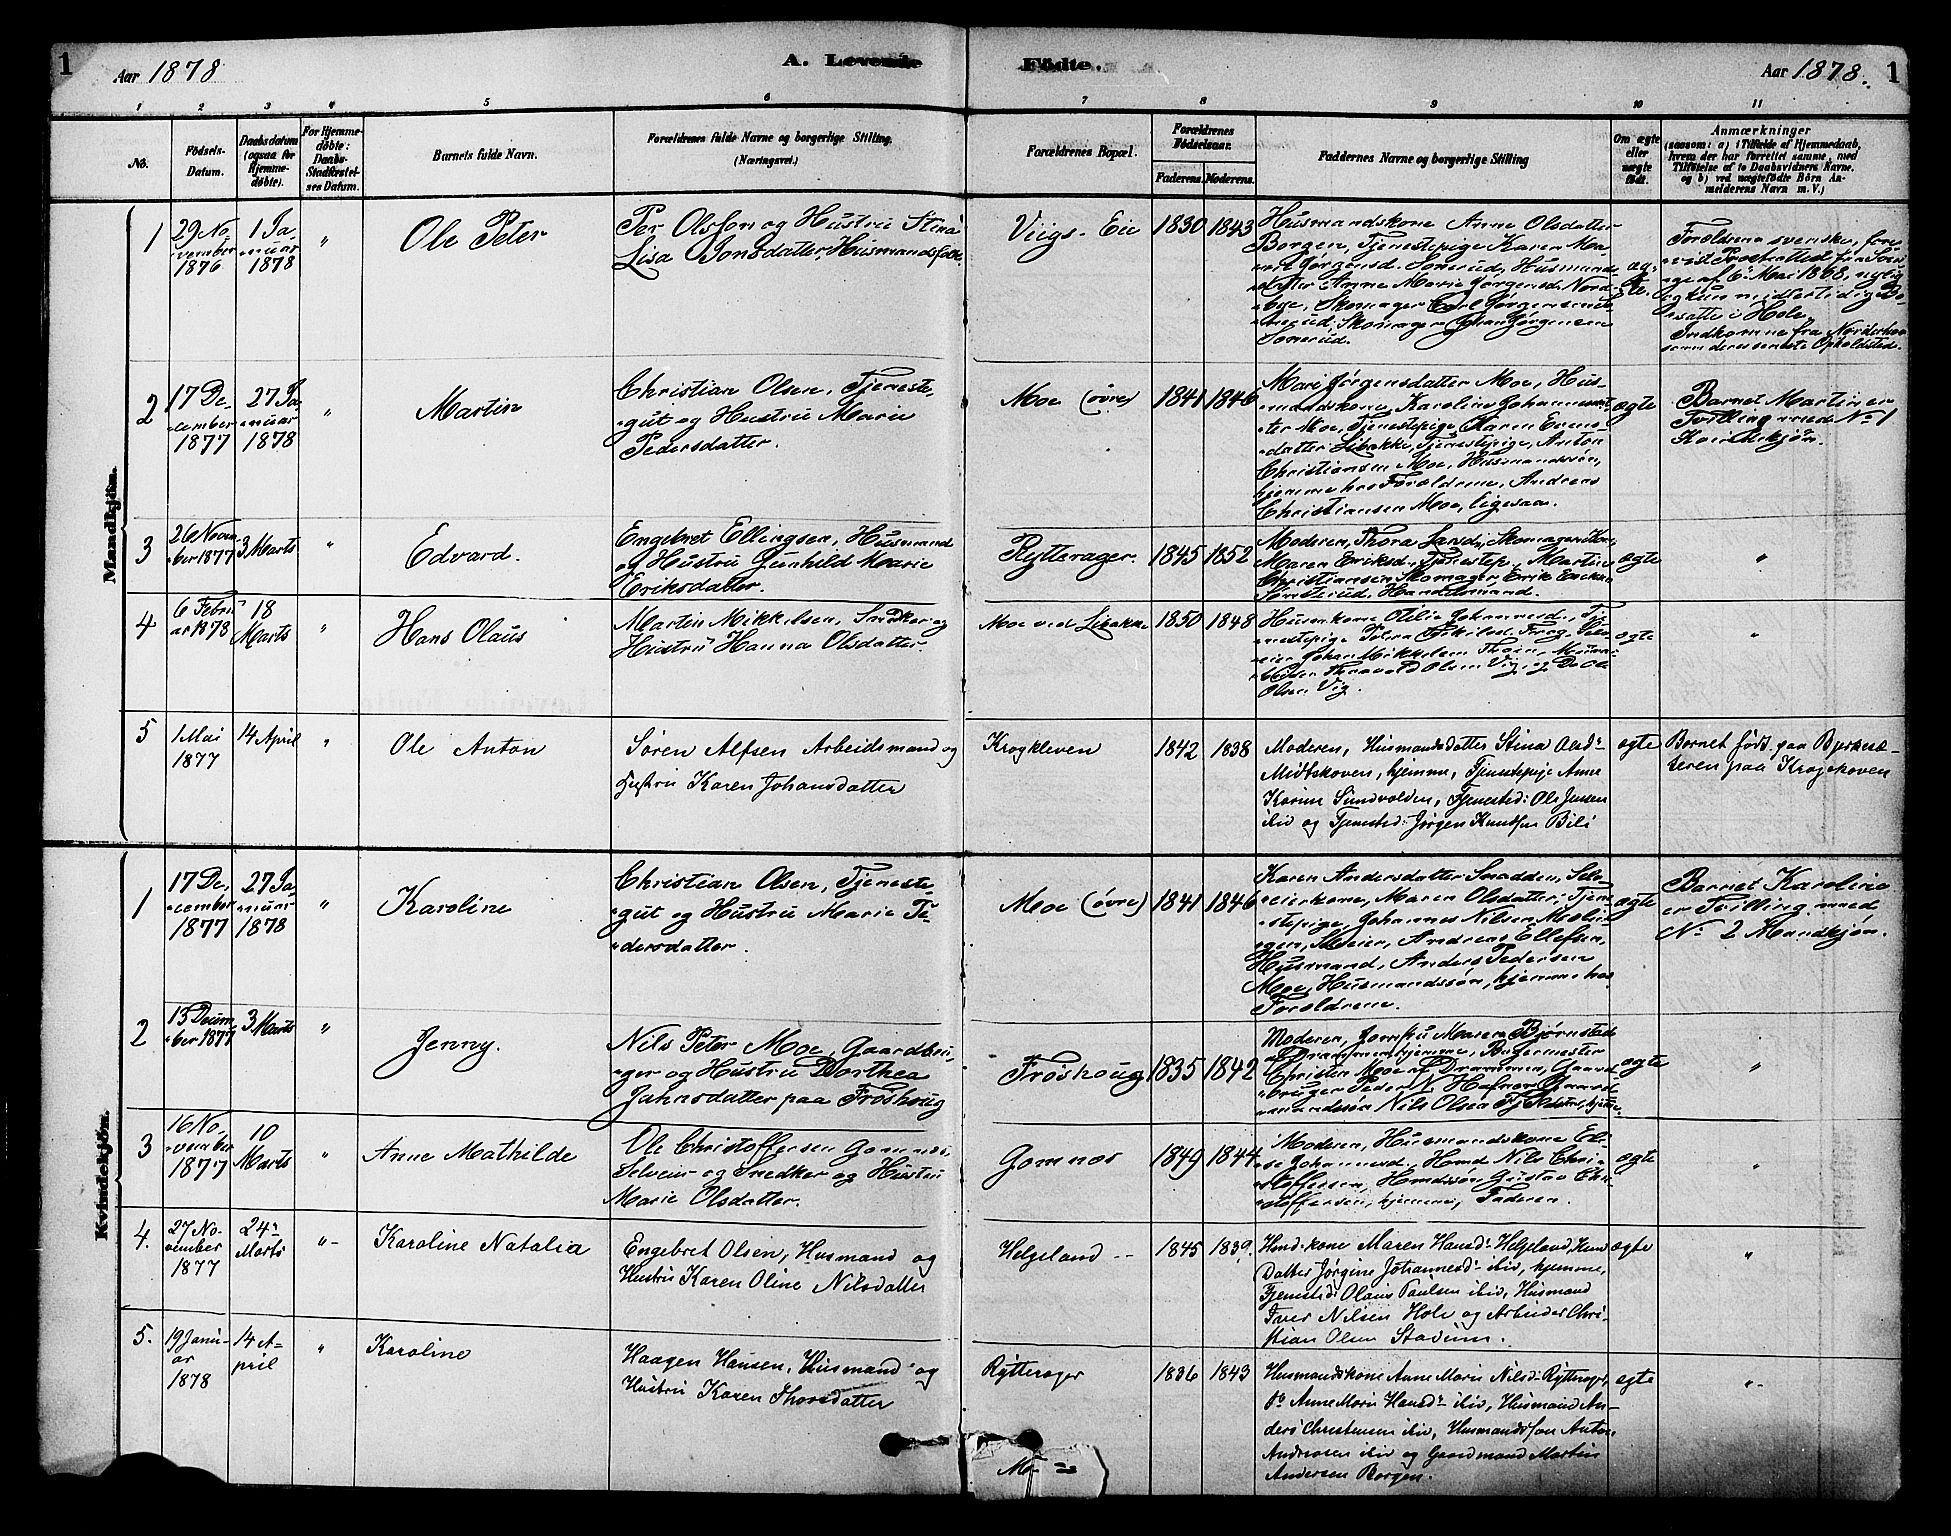 1
Aar 1878
A. Levende
Fødte.
Aar 1878.
1
1 2 3 4 5 6 7 8 9 10 11
No.
Fødsels-
Datum.
Daabsdatum
(ogsaa for
Hjemme-
døbte).
For Hjemme-
døbte:
Daabs-
Stadfæstel-
ses Datum.
Barnets fulde Navn.
Forældrenes fulde Navne og borgerlige Stilling.
(Næringsvei.)
Forældrenes Bopæl.
Forældrenes
Fødselsaar.
Faderens. Moderens.
Faddernes Navne og borgerlige Stilling
Om ægte
eller
uægte
født.
Anmærkninger
(saasom: a) i Tilfælde af Hjemmedaab,
hvem der har forrettet samme, med
Tilføielse af to Daabsvidners Navne,
og b) ved uægtefødte Børn An-
melderens Navn m. V.)
Mandkjøn.
1
29 No-
vember
1876
1 Ja-
nuar
1878
"
Ole Peter
Per Olsson og Hustru Stina
Lisa Jonsdatter, Husmandsfolk.
Viigs-Eie
1830
1843
Husmandskone Anne Olsdatter
Borgen, Tjenestepige Karen Ma-
rie Jørgensd. Sonerud, Husmands-
datter Anne Marie Jørgensd.
Skomager Carl Jørgensen
Skomager Johan Jørgensen
Sonerud.
æg-
te.
Forældrene svenske, fore-
vist
af 6 Mai 1868,
og kun midlertidig
satte i Hole.
Indkomne fra Norderhov
som deres seneste Opholdssted.
2
17 De-
cember
1877
27 Ja-
nuar
1878
"
Martin
Christian Olsen, Tjeneste-
gut og Hustru Marie
Pedersdatter.
Moe (øvre)
1841
1846
Mari Jørgensdatter Moe, Hus-
mandskone, Karoline Johannesdat-
ter Moe, Tjenestepige, Karen Evens-
datter Libakke, Tjenestepige, Anton
Christiansen Moe, Husmandssøn,
hjemme hos Forældrene, Andreas
Christiansen Moe, ligesaa.
ægte
Barnet Martin er
Tvilling med No 1
Kvindekjøn.
3
26 Novem-
ber 1877
3 Marts
"
Edvard.
Engebret Ellingsen, Husmand
og Hustru Gunhild Marie
Eriksdatter.
Rytterager.
1845
1852
Moderen, Thora Larsd., Skomagerkone,
Maren Eriksd., Tjenestep., Martin
Christiansen Skomager, Erik Eriksen
Handelsmand.
ægte
"
4
6 Febru-
ar 1878
18
Marts
"
Hans Olaus
Martin Mikkelsen, Snedker og
Hustru Hanna Olsdatter.
Moe ved Libakke
1850
1848
Huusmkone Otilie Johannesd., Tj-
enestepige
Johan Mikkelsen
Thorvald Olsen Vig, og
Olsen Vig.
ægte
"
5
1 Mai
1877
14 April
"
Ole Anton
Søren Alfsen Arbeidsmand og
Hustru Karen Johansdatter
Krogkleven
1842
1838
Moderen, Husmandsdatter Stina Olsdr
Midtskoven, hjemme, Tjenestepige Anne
Karine Sundvolden, Tjenested: Ole Jensen
ibid og Tjenested: Jørgen Knudsen Bili
ægte
Barnet født paa Byrkesæ-
teren paa Krogskoven
Kvindekjøn.
1
17 De-
cember
1877
27 Ja-
nuar
1878
"
Karoline
Christian Olsen, Tjeneste-
gut og Hustru Marie Pe-
dersdatter.
Moe (øvre)
1841
1846
Karen Andersdatter Sladden, Sel-
eierkone, Maren Olsdatter, Tjene-
stepige, Johannes Nilsen
Andreas Ellefsen,
Husmand, Anders Pedersen
Moe, Husmandssøn, hjemme hos
Forældrene.
ægte
Barnet Karoline
er Tvilling med
No 2 Mandkjøn.
2
13 Decem-
ber 1877
3 Marts
"
Jenny.
Nils Peter Moe, Gaardbru-
ger og Hustru Dorthea
Jahnsdatter paa Frøshoug
Frøshoug
1835
1842
Moderen, Jomfru Maren Bjørnstad
Drammen, hjemme, Bagermester
Christen Moe af Drammen, Gaard-
bruger Peder N. Hafnor, Gaard-
mandssøn Nils Olsen
ægte
"
3
16 No-
vember
1877
10
Marts
"
Anne Mathilde
Ole Christoffersen Gomnæs
Selveier og Snedker og Hustru
Marie Olsdatter.
Gomnæs
1849
1844
Moderen, Husmandskone El-
se Johannesd., Nils Chri-
stoffersen, Gustav Chri-
stoffersen, hjemme, Faderen.
ægte
"
4.
27 No-
vember
1877
24de
Marts
"
Karoline Natalia
Engebret Olsen, Husmand og
Hustru Karen Oline Nilsdatter
Helgeland
1845
1839.
kone Maren Hansdr Helgeland,
Datter Jørgine Johannesdr ibid, hjemme,
Tjenested: Olaus Paulsen ibid, Husmand
Iver Nilsen Hole og Arbeider Chri-
stian Olsen Stadum.
ægte
"
5.
19 Janu-
ar
1878
14 A-
pril
"
Karoline
Haagen Hansen, Husmand og
Hustru Karen Thorsdatter
Rytterager
1836
1843
Husmandskone Anne Marie Nilsd: Rytterager,
Do Anne Marie Hansdr ibid, Husmand An-
ders Christensen ibid, Husmandssøn Anton
Andersen ibid og Gaardmand Martin
Andersen Borgen.
ægte
"